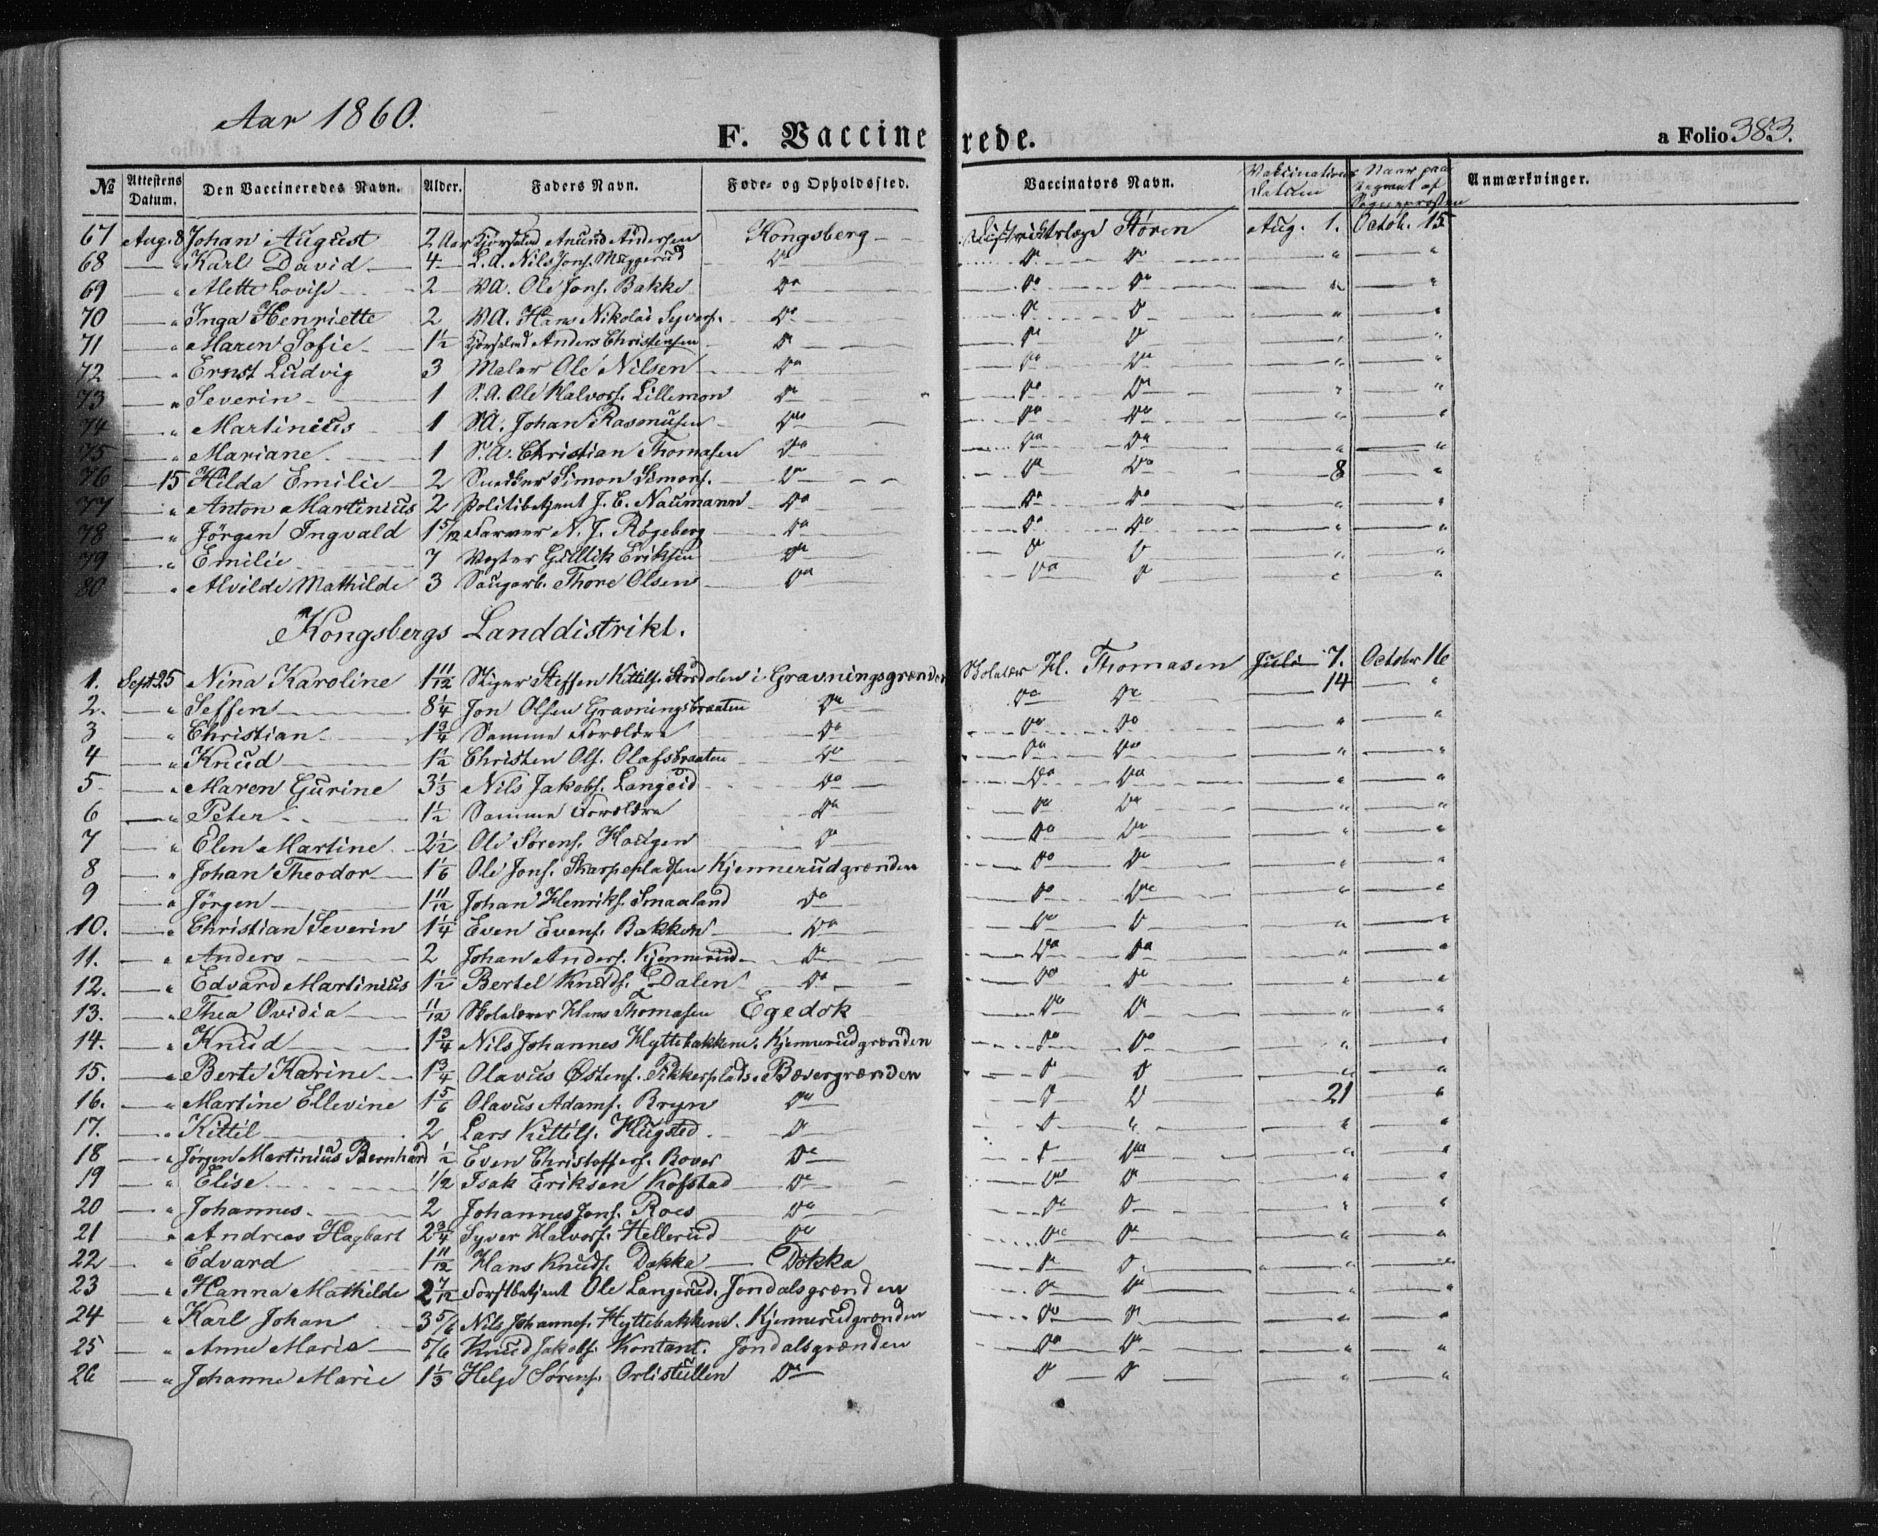 Aar 1860.
F. Vaccinerede.
a Folio 383.
№ Attestens Datum. Den Vaccineredes Navn. Alder. Faders Navn. Føde- og Opholdssted. Vaccinators Navn. Vakcinations Datum Naar paategnet af Sognepræsten Anmærkninger.
67 Aug. 8 Johan August 2 Aar Anund Andersen Kongsberg Støren Aug. 1. Octob. 15
68 — " Karl David 4 Nils Jons. Do Do Do " "
69 — " Alette Lovise 2 Ole Jons. Bakke Do Do Do " "
70 — " Inga Henriette 2 Hans Nikolai Syvers. Do D D " "
71 — " Maren Sofie 1½ Anders Christensen D Do D " "
72 — " Ernst Ludvig 3 Maler Ole Nilsen Do Do Do " "
73 — " Severin 1 S.A. Ole Halvors. Lillemon D Do Do " "
74 — " Martinius 1 S.A. Johan Rasmusen Do Do Do " "
75 — " Mariane 1 S.A. Christian Thomasen Do Do Do " "
76 — 15 Hilda Emilie 2 Snedker Simon Simons. D D Do 8 "
77 — " Anton Martinius 2 Politibetjent J. E. Naumann Do Do Do " "
78 — " Jörgen Ingvald 1 5/12 Farver N. J. Rögeberg Do Do Do " "
79 — " Emilie 7 Gullik Eriksen Do D D " "
80 — " Alvilde Mathilde 3 Saugarb. Thore Olsen Do Do D " "
Kongsbergs Landdistrikt.
1. Sept. 25 Nina Karoline 1 11/12 Stiger Steffen Kittils. i Gravningsgrænden Skolelær H. Thomasen Juli 7. October 16
2. — " Seffen 8¼ Jon Olsen Gravningsbraaten Do Do Do 14 "
3 — " Christian 1¾ Samme Forældre Do Do Do " "
4 — " Knud 1½ Christen Ols. Olafsbraaten Do Do Do " "
5. — " Maren Gurine 3⅓ Nils Jakobs. Langeid Do Do Do " "
6 — " Peter 1½ Samme Forældre Do Do Do " "
7 — " Elen Martine 2½ Ole Sørens. Haugen D Do Do " "
8 — " Johan Theodor 1⅙ Ole Jons. Skarpepladsen Kjennerudgrænden Do Do " "
9 — " Jörgen 1 11/12 Johan Henriks. Smaaland Do Do Do " "
10. — " Christian Severin 1¼ Even Evens. Bakken Do Do D " "
11. — " Anders 2 Johan Anders. Kjennerud D Do Do " "
12. — " Edvard Martinius 1½ Bertel Knuds. Dalen Do Do D " "
13. — " Thea Ovidia 11/12 Skolelærer Hans Thomasen Egedok Do D " "
14. — " Knud 1¾ Nils Johannes Hyttebakken. Kjennerudgrænden Do Do " "
15. — " Berte Karine 1¾ Olavus Østens. Pikkerplads. Bævergrænden D D " "
16. — " Martine Ellevine 1⅚ Olavus Adams. Bryn Do D D 21 "
17. — " Kittil 2 Lars Kittils. Hugsted D D " " "
18 — " Jørgen Martinius Bernhard ½ Even Christoffers. Bover Do D Do " "
19 — " Elise ½ Isak Eriksen Kofstad Do Do D " "
20 — " Johannes 2 Johannes Jons. Roes Do Do D " "
21 — " Andreas Hagbart 2¾ Syver Halvors. Hellerud Do Do D " "
22 — " Edvard 1 11/12 Hans Knuds. Dokka Dokka D D " "
23 — " Hanna Mathilde 2 7/12 Forstbetjent Ole Langerud. Jondalsgrænden D D " "
24 — " Karl Johan 3 5/6 Nils Johannes. Hyttebakken. Kjennerudgrænden Do D " "
25 — " Anne Marie 5/6 Knud Jakobs. Kontant. Jondalsgrænden Do D " "
26 — " Johanne Marie 1⅓ Helge Sørens. Orlistullen Do D D " "